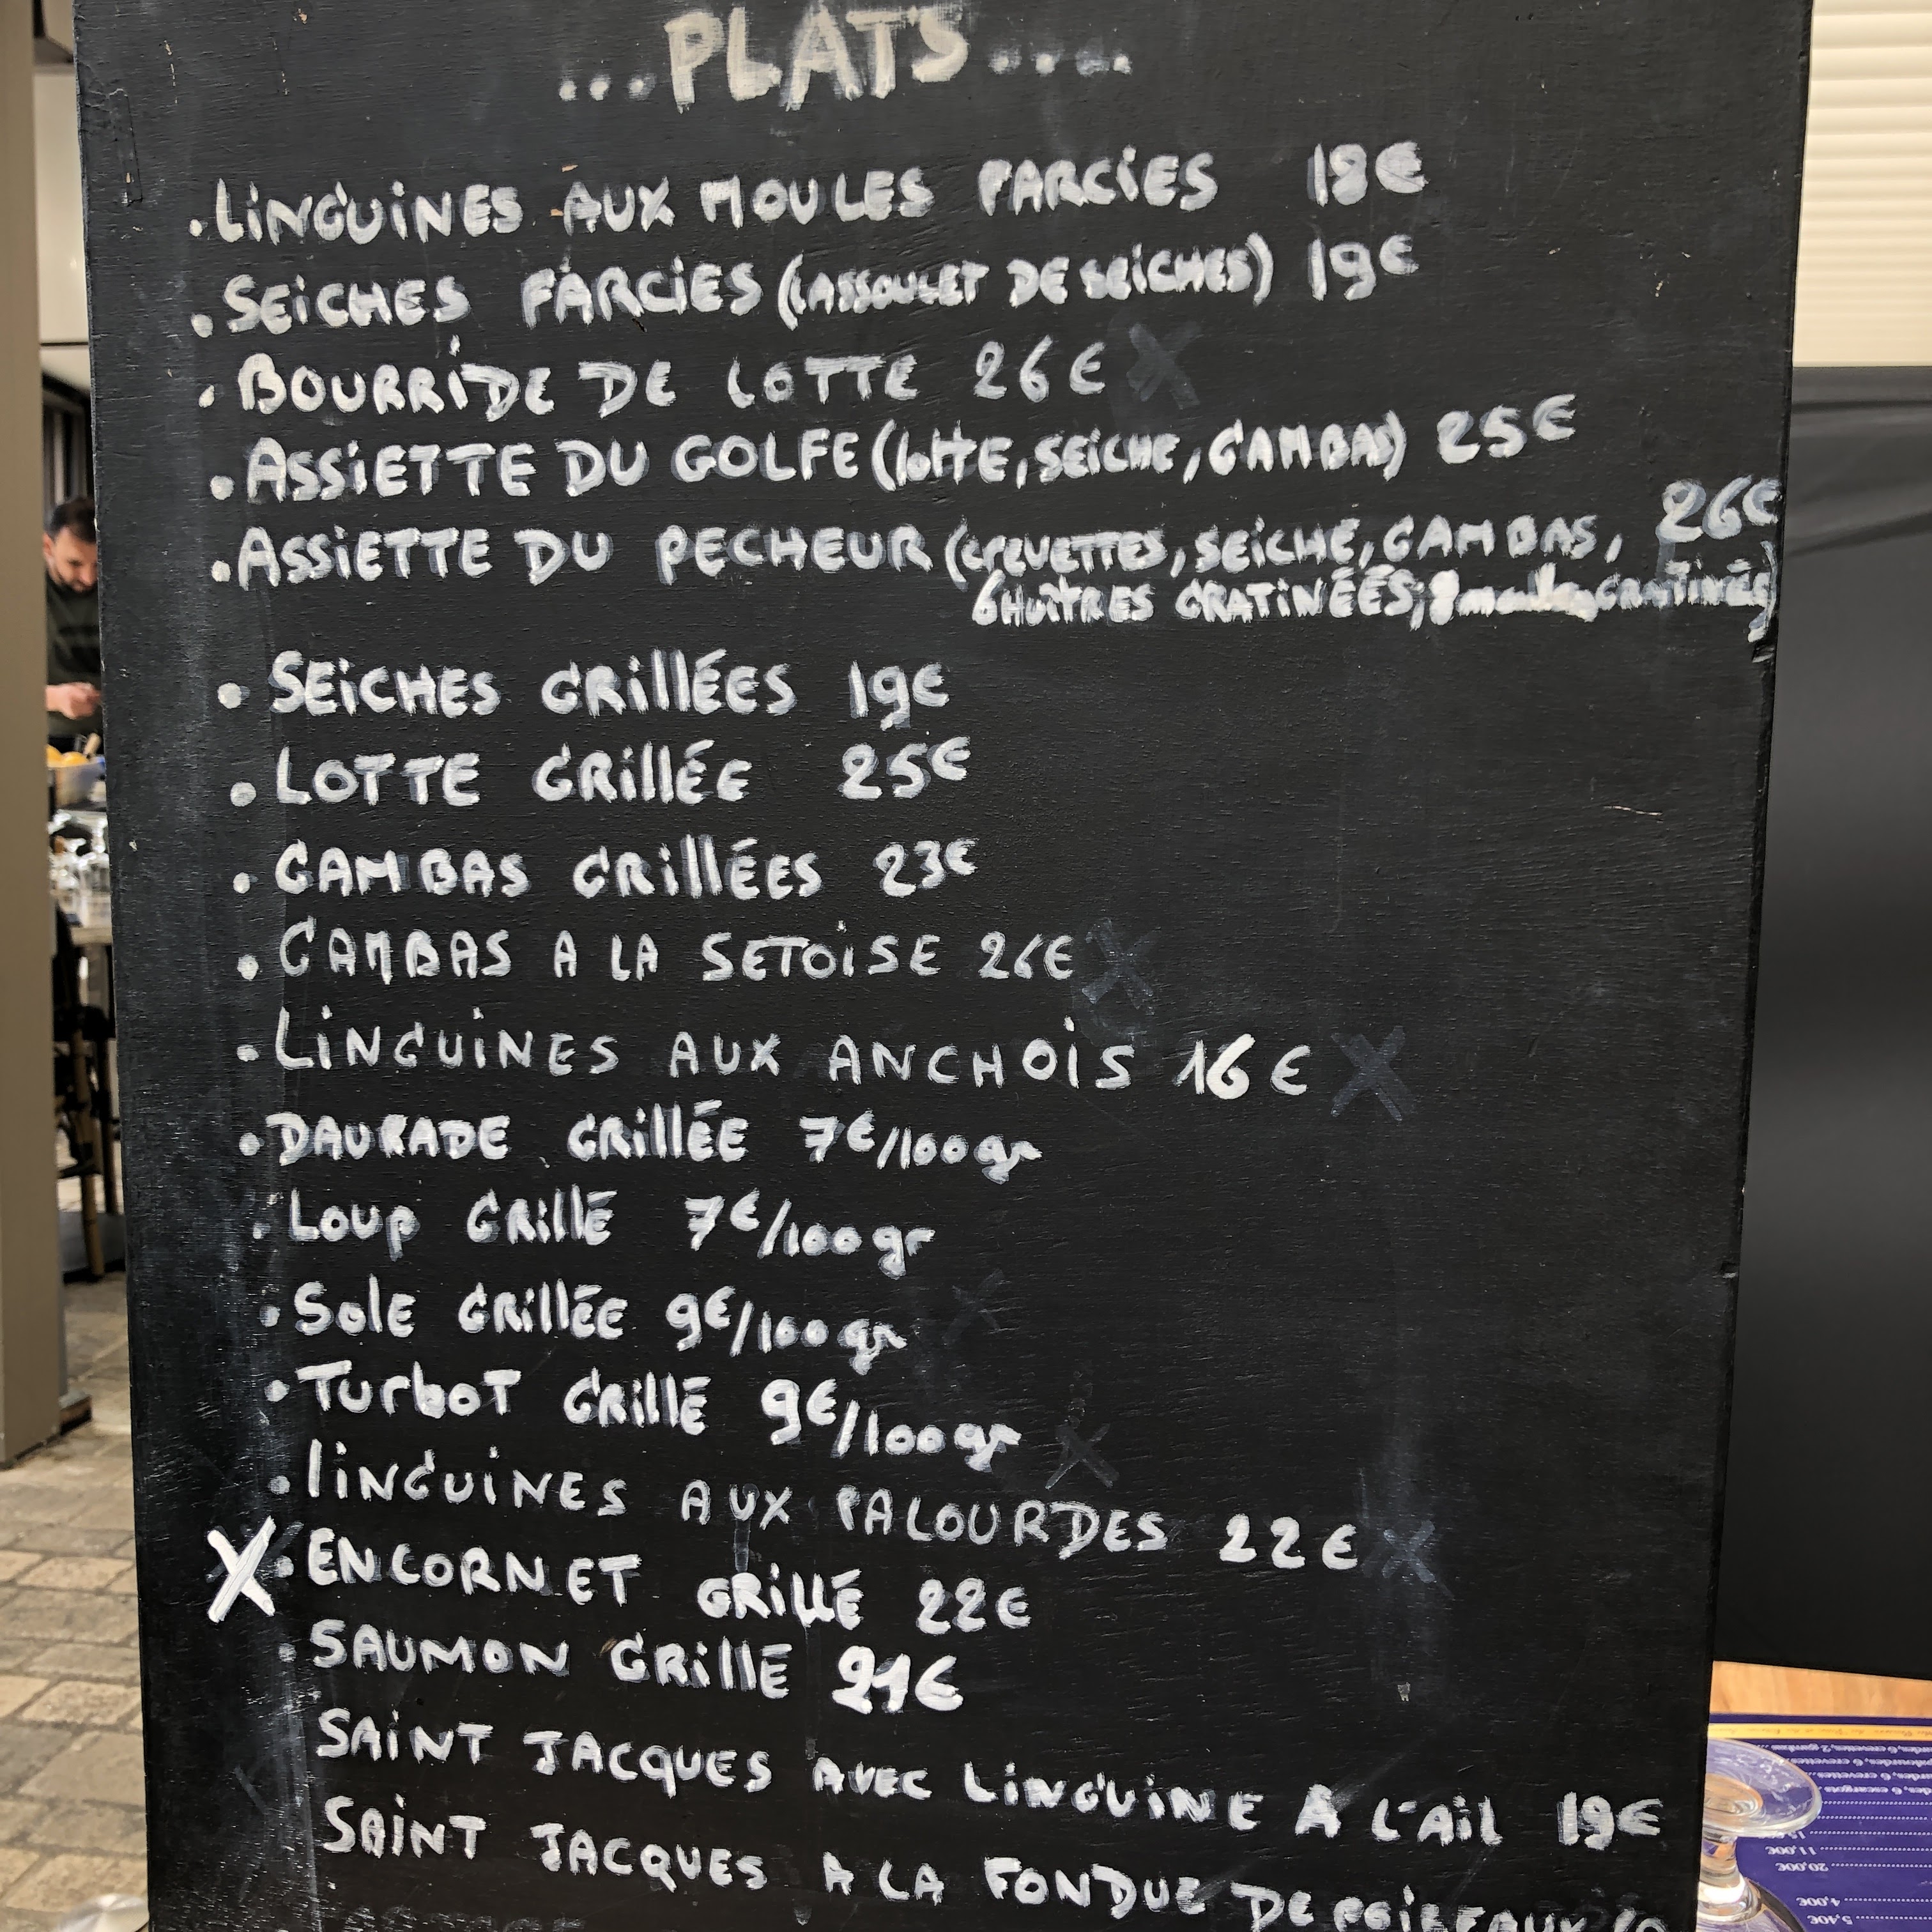 ...PLATS....
.LiNGUiNES AUX MOULES FARCiES 18€
.SEiCHES FARCiES (CASSOULET DE SEiCHES) 19€
.BOURRiDE DE LOTTE 26€ X
.ASSiETTE DU GOLFE (lottE, SEiCHE, GAMBAS) 25€
.ASSiETTE DU PECHEUR (CREVETTES, SEiCHE, GAMBAS, 26€
6 HUîTRES GRATiNÉES; 8 moules GRATiNéEs)
.SEiCHES GRillÉES 19€
.LOTTE GRillÉE 25€
.GAMBAS GRillÉES 23€
.GAMBAS A LA SETOiSE 26€ X
.LiNGUiNES AUX ANCHOiS 16€ X
.DAURADE GRillÉE 7€/100gr
.LOUP GRillÉ 7€/100gr
.SOlE GRillÉE 9€/100gr X
.TurboT GRillÉ 9€/100gr X
.liNGUiNES AUX PALOURDES 22€ X
X.ENCORNET GRiLLÉ 22€
.SAUMON GRillÉ 21€
SAiNT JACQUES AVEC LiNGUiNE A L'AiL 19€
SAiNT JACQUES A LA FONDUE DE POiREAUX
11,00€
20,00€
4,00€
5,40€